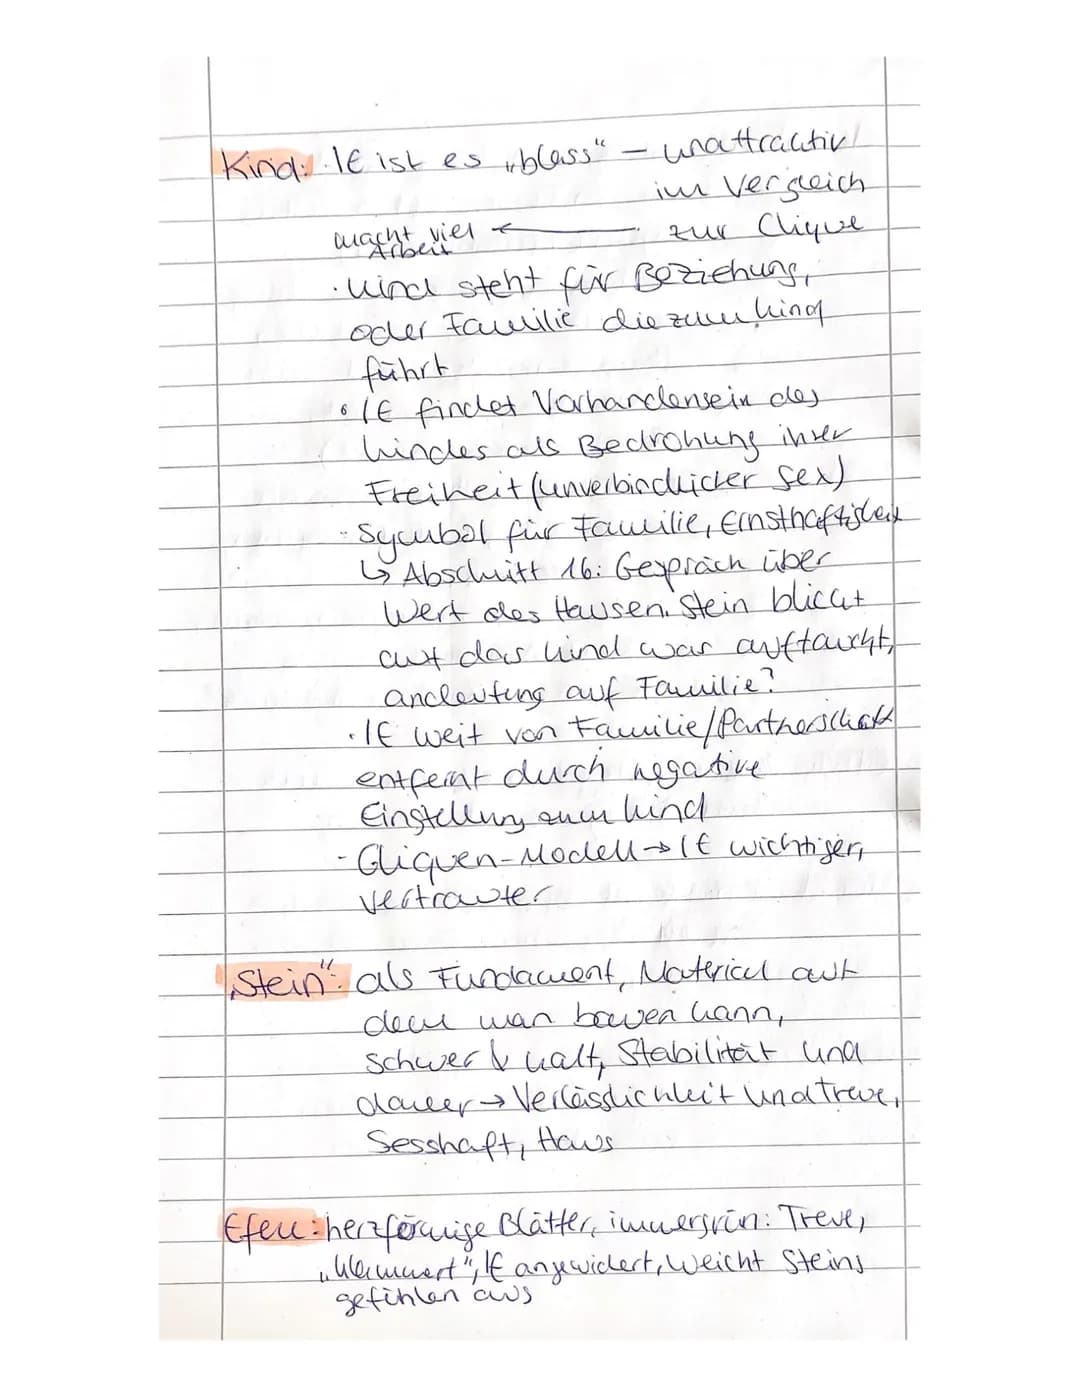 Kind: · IE ist es „blass" – unattraktiv
im Vergleich
macht viel ← zur Clique
Arbeit
· Kind steht für Beziehung,
oder Familie die zum Kind
führt
· IE findet Vorhandensein des
Kindes als Bedrohung ihrer
Freiheit (unverbindlicher Sex)
- Symbol für Familie, Ernsthaftigkeit
↳ Abschnitt 16: Gespräch über
Wert des Hauses. Stein blickt
auf das Kind was auftaucht,
andeutung auf Familie?
· IE weit von Familie/Partnerschaft
entfernt durch negative
Einstellung zum Kind
- Cliquen-Modell → IE wichtiger,
vertrauter
„Stein": als Fundament, Material auf
dem man bauen kann,
schwer & kalt, Stabilität und
dauer → Verlässlichkeit und Treue,
Sesshaft, Haus
Efeu: herzförmige Blätter, immergrün: Treue,
„klammert", IE angewidert, weicht Steins
gefühlen aus